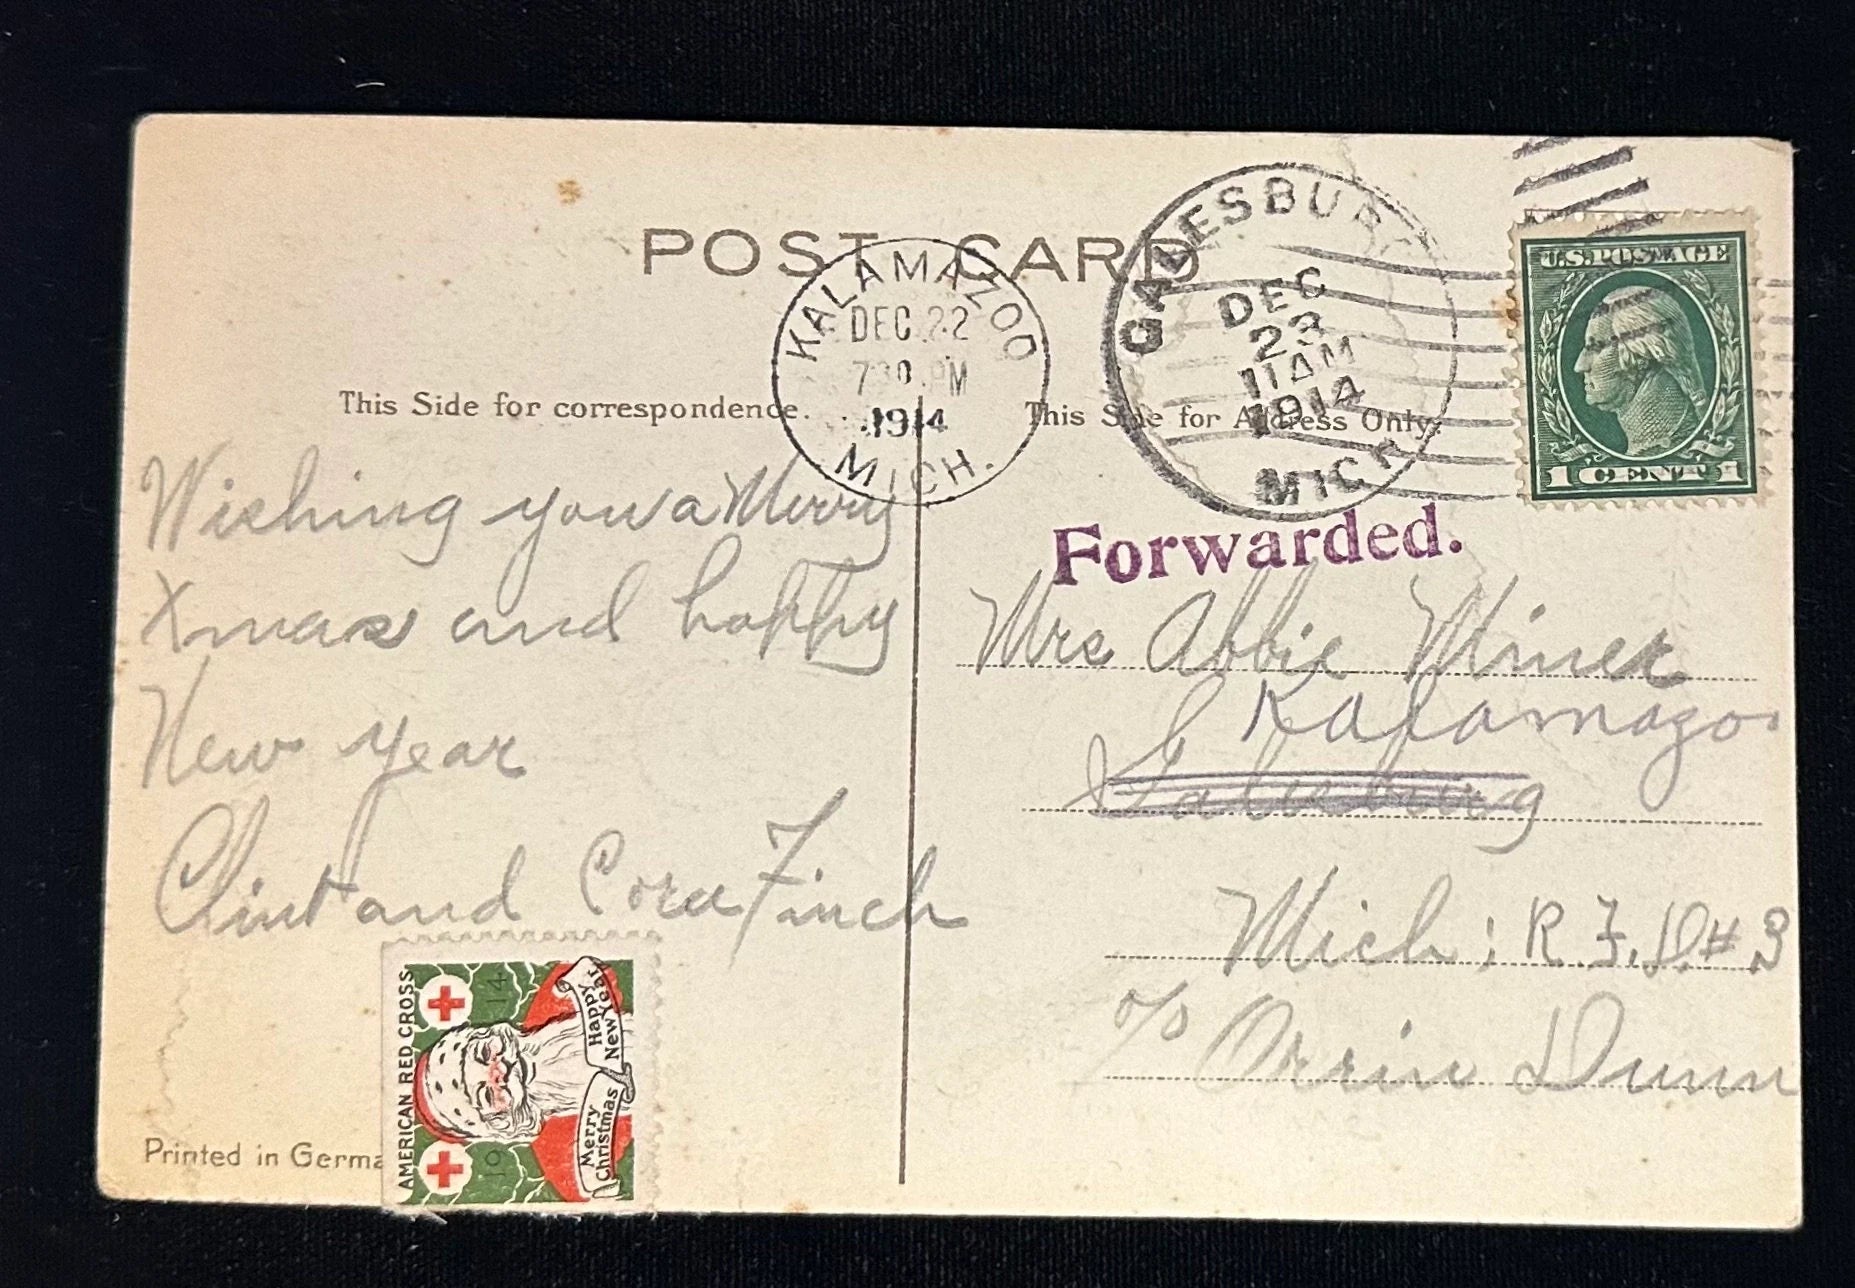 POST CARD
KALAMAZOO
DEC 22
730 PM
1914
MICH.
GALESBURG
DEC
23
11 AM
1914
MICH
U.S. POSTAGE
1 CENT 1
This Side for correspondence.
This Side for Address Only.
Wishing you a Merry
Xmas and happy
New year
Clint and Cora Finch
Forwarded.
Mrs Abbie Miner
Kalamazoo
Galesburg
Mich; R.F.D.#3
c/o Orrin Dunn
AMERICAN RED CROSS
1914
Merry
Christmas
Happy
New Year
Printed in Germa